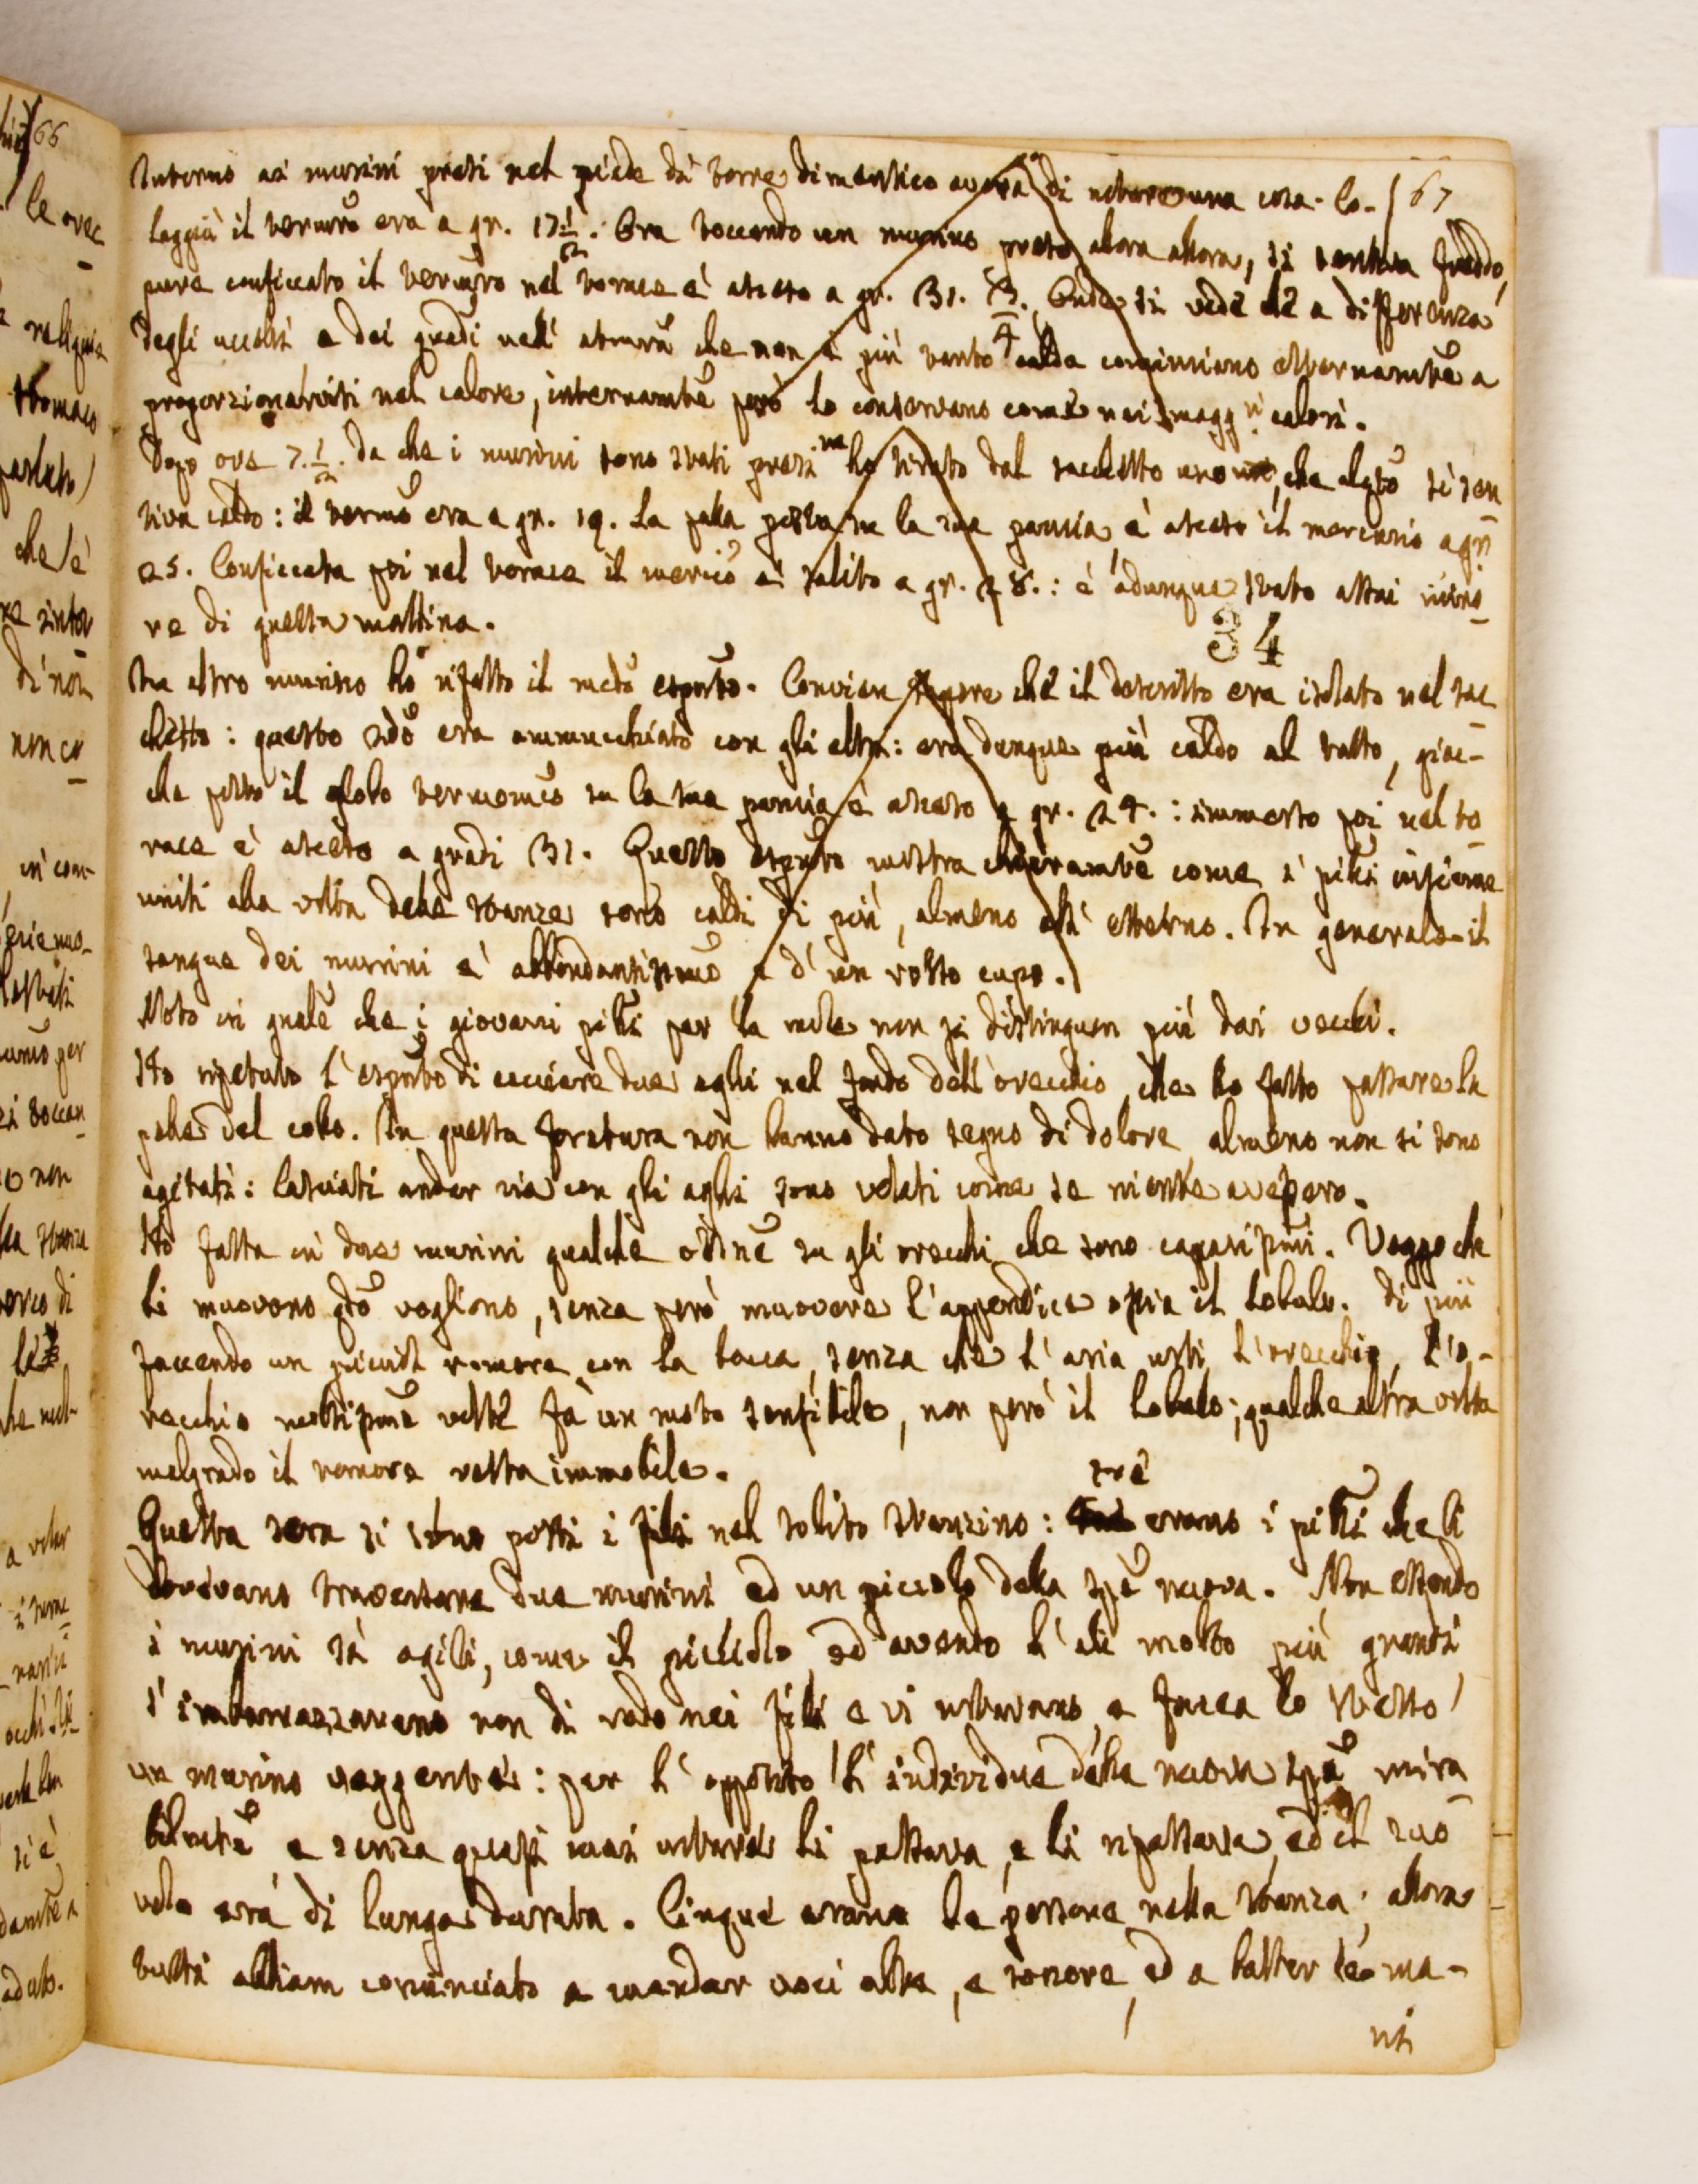 Intorno ai murini presi nel piede di torre dimentico avera di notare una cosa. Co- 67
laggiù il termro era a gr. 17 1/2. Ora toccando un murino preso allora allora, si sentiva freddo,
pure conficcato il termro nel torace è asceso a gr. 31. 3/4. Onde si vede che a differenza
degli uccelli e dei quadi nell' atmra che non è più tanto calda cominciano esternamte a
proporzionarvisi nel calore, internamte però lo conservano come nei magg ri calori.
Dopo ore 7. 1/2. da che i murini sono stati presi ne ho tirato dal sacchetto uno che alqto si sen
tiva caldo: il termro era a gr. 19. La palla posta su la sua pancia è asceso il mercurio a gr.
25. Conficcata poi nel torace il mercio è salito a gr. 28.: è adunque stato assai mino
re di questa mattina.
34
Su altro murino ho rifatto il medo esprto. Convien sapere che il descritto era isolato nel sac
chetto: questo 2do era ammucchiato con gli altri: era dunque più caldo al tatto, giac-
che posto il globo termomco su la sua pancia è asceso a gr. 24.: immerso poi nel to
race è asceso a gradi 31. Questo esprto mostra chiaramte come i pilli insieme
uniti alla volta della stanza sono caldi di più, almeno all' esterno. In generale il
sangue dei murini è abbondantissmo e d' un rosso cupo.
Noto in gnale che i giovani pilli per la mole non si distinguon più dai vecchi.
Ho ripetuto l' esprto di cacciare due aghi nel fondo dell' orecchio, che ho fatto passare la
pelle del collo. In questa foratura non hanno dato segno di dolore almeno non si sono
agitati: lasciati andar via con gli aghi sono volati come se niente avessero.
Ho fatta in due murini qualche ossne su gli orecchi che sono capacipmi. Veggo che
li muovono qdo vogliono, senza però muovere l' appendice ossia il lobulo. Di più
facendo un piccol romore con la bocca, senza che l' aria urti l' orecchio, l' o-
recchio moltipme volte fà un moto sensibile, non però il lobulo; qualche altra volta
malgrado il romore resta immobile.
tre
Questa sera si sono posti i fili nel solito stanzino: erano i pilli che li
dovevano traversare due murini ed un piccolo della spe nuova. Non essendo
i murini sì agili, come il piccolo ed avendo l' ali molto più grandi
s' imbarazzavano non di rado nei fili e vi urtavano, e facea lo stesso
un murino veggente: per l' opposito l' individuo della nuova spe mira
bilmte e senza quasi mai urtare li passava, e li ripassava, ed il suo
volo era di lunga durata. Cinque erano le persone nella stanza: allora
tutti abbiam cominciato a mandar voci alte, e sonore, ed a batter le ma-
ni